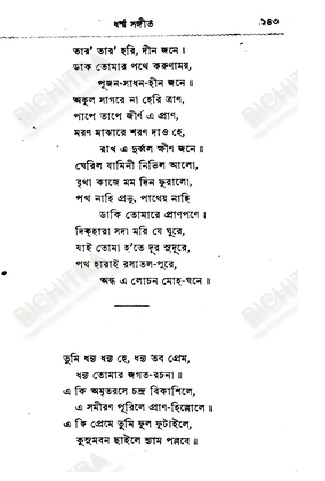 ধর্ম্ম সঙ্গীত ১৪৩
তার' তার' হরি, দীন জনে।
ডাক তোমার পথে করুণাময়,
পূজন-সাধন-হীন জনে॥
অকূল সাগরে না হেরি ত্রাণ,
পাপে তাপে জীর্ণ এ প্রাণ,
মরণ মাঝারে শরণ দাও হে,
রাখ এ দুর্ব্বল ক্ষীণ জনে॥
ঘেরিল যামিনী নিভিল আলো,
বৃথা কাজে মম দিন ফুরালো,
পথ নাহি প্রভু, পাথেয় নাহি
ডাকি তোমারে প্রাণপণে॥
দিকহারা সদা মরি যে ঘুরে,
যাই তোমা হ'তে দূর সুদূরে,
পথ হারাই রসাতল-পুরে,
অন্ধ এ লোচন মোহ-ঘনে॥
তুমি ধন্য ধন্য হে, ধন্য তব প্রেম,
ধন্য তোমার জগত-রচনা॥
এ কি অমৃতরসে চন্দ্র বিকাশিলে,
এ সমীরণ পূরিলে প্রাণ-হিল্লোলে॥
এ কি প্রেমে তুমি ফুল ফুটাইলে,
কুসুমবন ছাইলে শ্যাম পল্লবে॥
BICHITRA